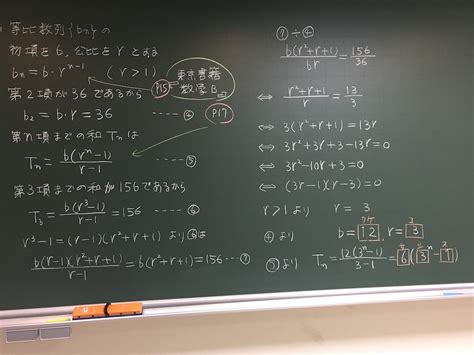 等比数列{bn}の
初項をb, 公比をrとする
bn = b・r^(n-1) (r>1)
P15
東京書籍
数学B
第2項が36であるから
b2 = b・r = 36 ‥‥ ④
P17
第n項までの和Tnは
Tn = b(r^n-1)/(r-1) ‥‥ ⑤
第3項までの和が156であるから
T3 = b(r³-1)/(r-1) = 156 ‥‥ ⑥
r³-1=(r-1)(r²+r+1) より⑥は
b(r-1)(r²+r+1)/(r-1) = b(r²+r+1)=156 ‥⑦
⑦÷④
b(r²+r+1)/br = 156/36
⇔ (r²+r+1)/r = 13/3
⇔ 3(r²+r+1)=13r
⇔ 3r²+3r+3-13r=0
⇔ 3r²-10r+3=0
⇔ (3r-1)(r-3)=0
r>1より r=3
④より b=12, r=3
⑤より Tn = 12(3^n-1)/(3-1) = 6(3^n-1)